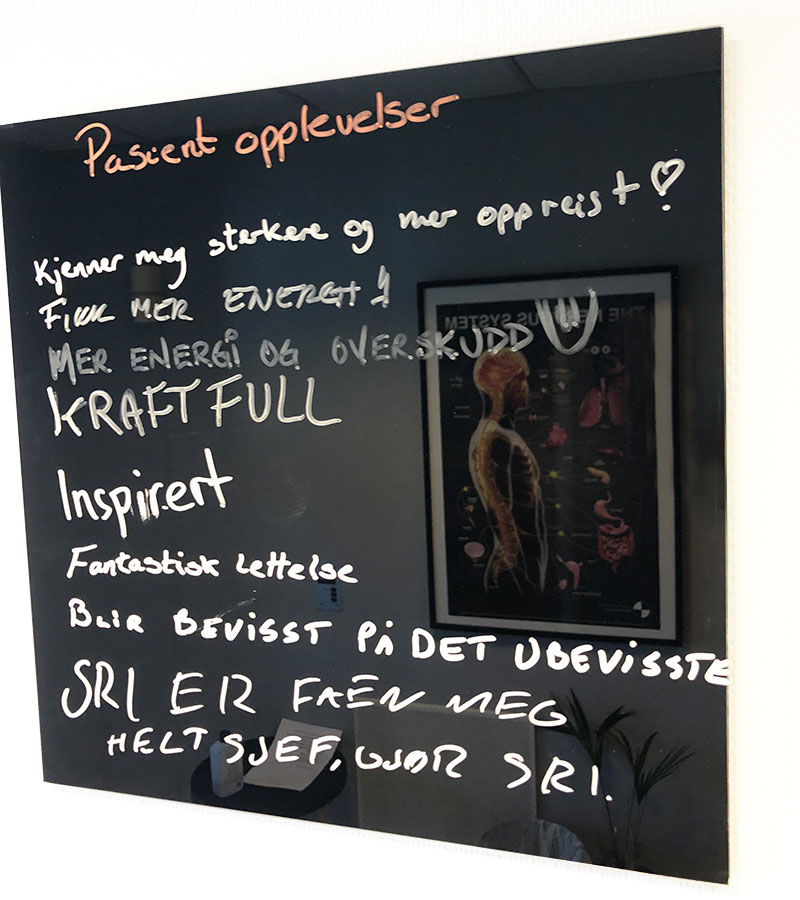 Pasient opplevelser
Kjenner meg sterkere og mer oppreist ♡!
FIKK MER ENERGI!
MER ENERGI OG OVERSKUDD
KRAFTFULL
Inspirert
Fantastisk Lettelse
BLIR BEVISST PÅ DET UBEVISSTE
SRI ER FAEN MEG
HELT SJEF, GJØR SRI.
THE NERVOUS SYSTEM